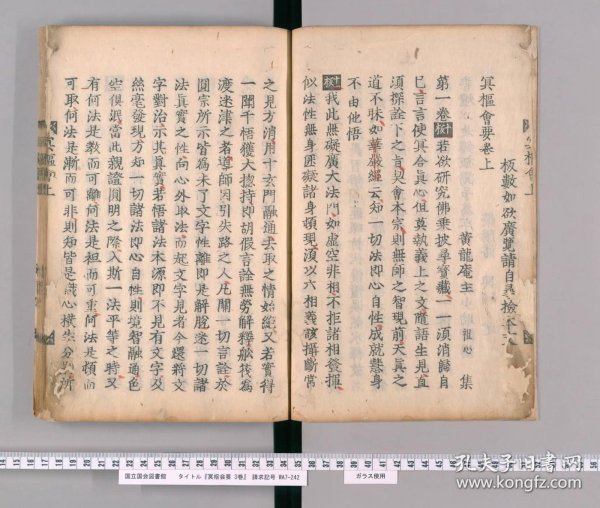 冥樞會要卷上
板數如欲廣覽請自具撿本文
黃龍庵主 祖心 集
第一卷 若欲研究佛乘披尋寶藏一一須消歸自
己言言使冥合真心但莫執義上之文隨語生見直
須探詮下之旨契會本宗則無師之智現前天真之
道不昧如華嚴經云知一切法即心自性成就慧身
不由他悟
我此無礙廣大法門如虛空非相不拒諸相發揮
似法性無身匪礙諸身頓現須以六相義該攝斷常
之見方消用十玄門融通去取之情始絕又若實得
一聞千悟獲大摠持即胡假言詮無勞解釋舩筏為
渡迷津之者導師因引失路之人凡關一切言詮於
圓宗所示皆為未了文字性離即是解脫迷一切諸
法真實之性向心外取法而起文字見者今還將文
字對治示其真實若悟諸法本源即不見有文字及
絲毫發現方知一切諸法即心自性則境智融通色
空俱泯當此親證圓明之際入斯一法平等之時又
有何法是教而可離何法是祖而可重何法是頓而
可取何法是漸而可非則知皆是識心橫生分別所
冥樞會上
国立国会図書館 タイトル『冥枢会要 3巻』 請求記号 WA7-242
ガラス使用
孔夫子旧书网